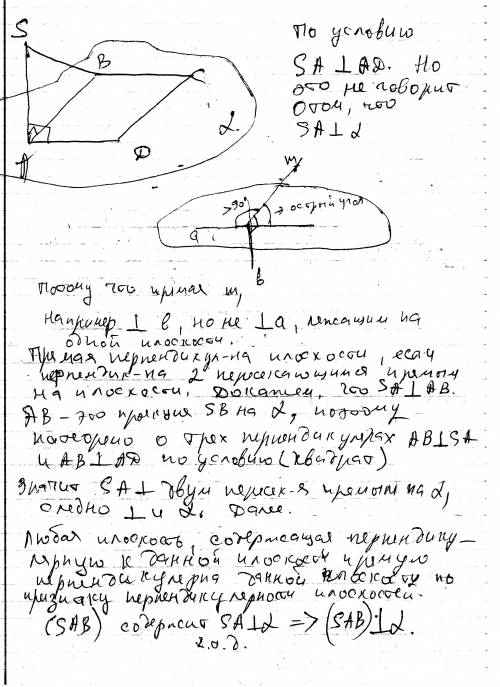 S
B
C
A
D
α
По условию
SA⊥AD. Но
это не говорит
о том, что
SA⊥α
m
>90°
острый угол
a
в
Потому что прямая m,
например ⊥ в, но не ⊥ a, лежащим на
одной плоскости.
Прямая перпендикул-на плоскости, если
перпендик-на 2 пересекающимся прямым
на плоскости. Докажем, что SA⊥AB.
AB – это проекция SB на α, поэтому
по теореме о трех перпендикулярах AB⊥SA
и AB⊥AD по условию (квадрат)
Значит SA⊥ двум пересек-я прямым на α,
следно ⊥ и α. Далее.
Любая плоскость, содержащая перпендику-
лярную к данной плоскости прямую
перпендикулярна данной плоскости по
признаку перпендикулярности плоскостей.
(SAB) содержит SA⊥α => (SAB)⊥α.
ч.т.д.